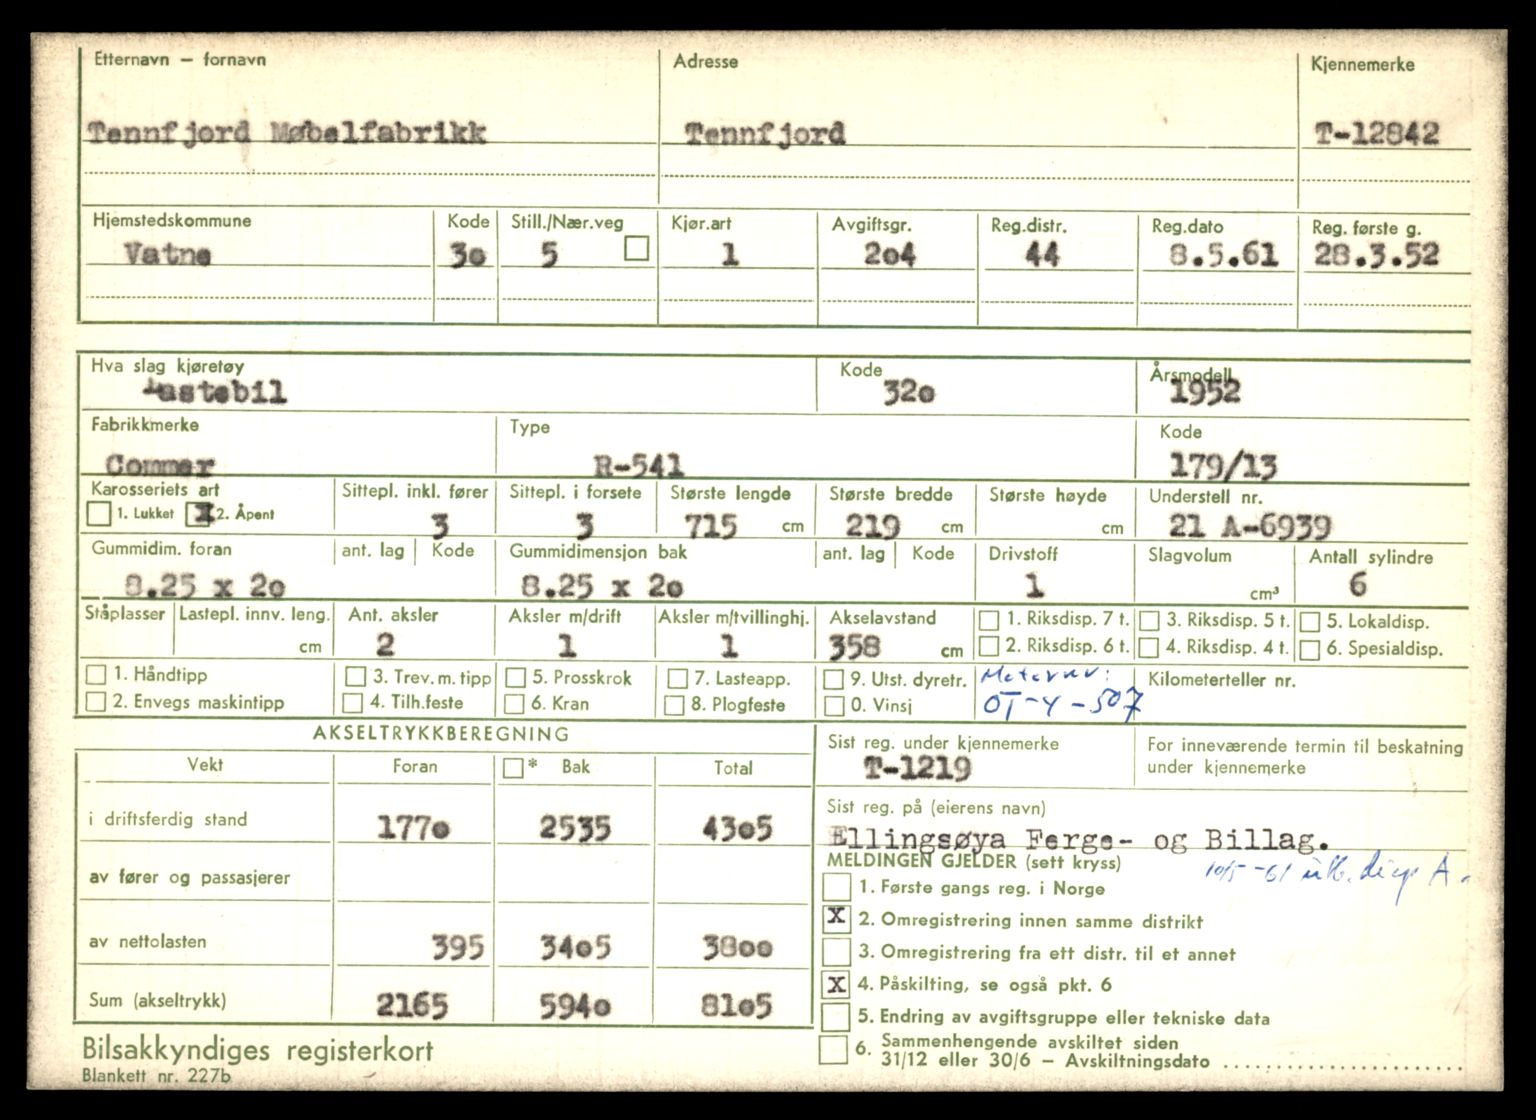 Etternavn — fornavn Adresse Kjennemerke
Tennfjord Møbelfabrikk Tennfjord T-12842
Hjemstedskommune Kode Still./Nær.veg Kjør.art Avgiftsgr. Reg.distr. Reg.dato Reg. første g.
Vatne 3o 5 1 2o4 44 8.5.61 28.3.52
Hva slag kjøretøy Kode Årsmodell
Lastebil 32o 1952
Fabrikkmerke Type Kode
Commer R-541 179/13
Karosseriets art Sittepl. inkl. fører Sittepl. i forsete Største lengde Største bredde Største høyde Understell nr.
1. Lukket X 2. Åpent 3 3 715 cm 219 cm cm 21 A-6939
Gummidim. foran ant. lag Kode Gummidimensjon bak ant. lag Kode Drivstoff Slagvolum Antall sylindre
8.25 x 2o 8.25 x 2o 1 cm³ 6
Ståplasser Lastepl. innv. leng. Ant. aksler Aksler m/drift Aksler m/tvillinghj. Akselavstand 1. Riksdisp. 7 t. 3. Riksdisp. 5 t. 5. Lokaldisp.
cm 2 1 1 358 cm 2. Riksdisp. 6 t. 4. Riksdisp. 4 t. 6. Spesialdisp.
1. Håndtipp 3. Trev. m. tipp 5. Prosskrok 7. Lasteapp. 9. Utst. dyretr. Kilometerteller nr.
2. Envegs maskintipp 4. Tilh.feste 6. Kran 8. Plogfeste 0. Vinsj OT-4-507
AKSELTRYKKBEREGNING Sist reg. under kjennemerke For inneværende termin til beskatning
Vekt Foran * Bak Total T-1219 under kjennemerke
Sist reg. på (eierens navn)
i driftsferdig stand 177o 2535 43o5 Ellingsøya Ferge- og Billag.
MELDINGEN GJELDER (sett kryss) 10/5-61
av fører og passasjerer 1. Første gangs reg. i Norge
X 2. Omregistrering innen samme distrikt
av nettolasten 395 34o5 38oo 3. Omregistrering fra ett distr. til et annet
X 4. Påskilting, se også pkt. 6
Sum (akseltrykk) 2165 594o 81o5 5. Endring av avgiftsgruppe eller tekniske data
Bilsakkyndiges registerkort 6. Sammenhengende avskiltet siden
Blankett nr. 227b 31/12 eller 30/6 — Avskiltningsdato ........................